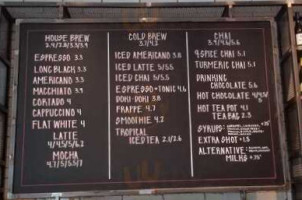 HOUSE BREW
3.4/3.6/3.3/3.9
ESPRESSO 3.3
LONG BLACK 3.3
AMERICANO 3.3
MACCHIATO 3.9
CORTADO 4
CAPPUCCINO 4
FLAT WHITE 4
LATTE
4/4.5/5/6.2
MOCHA
4.7/5/5.5/7
COLD BREW
3.7/4.5
ICED AMERICANO 3.8
ICED LATTE 5/5.5
ICED CHAI 5/5.5
ESPRESSO+TONIC 4.6
DOKI DOKI 3.8
FRAPPE 4.7
SMOOTHIE 4.2
TROPICAL
ICED TEA 2.1/2.6
CHAI
4 SPICE CHAI 5.1
TURMERIC CHAI 5.1
DRINKING
CHOCOLATE 5.6
HOT CHOCOLATE
HOT TEA POT 4.1
TEA BAG 2.3
SYRUPS
EXTRA SHOT +1.5
ALTERNATIVE
MILKS